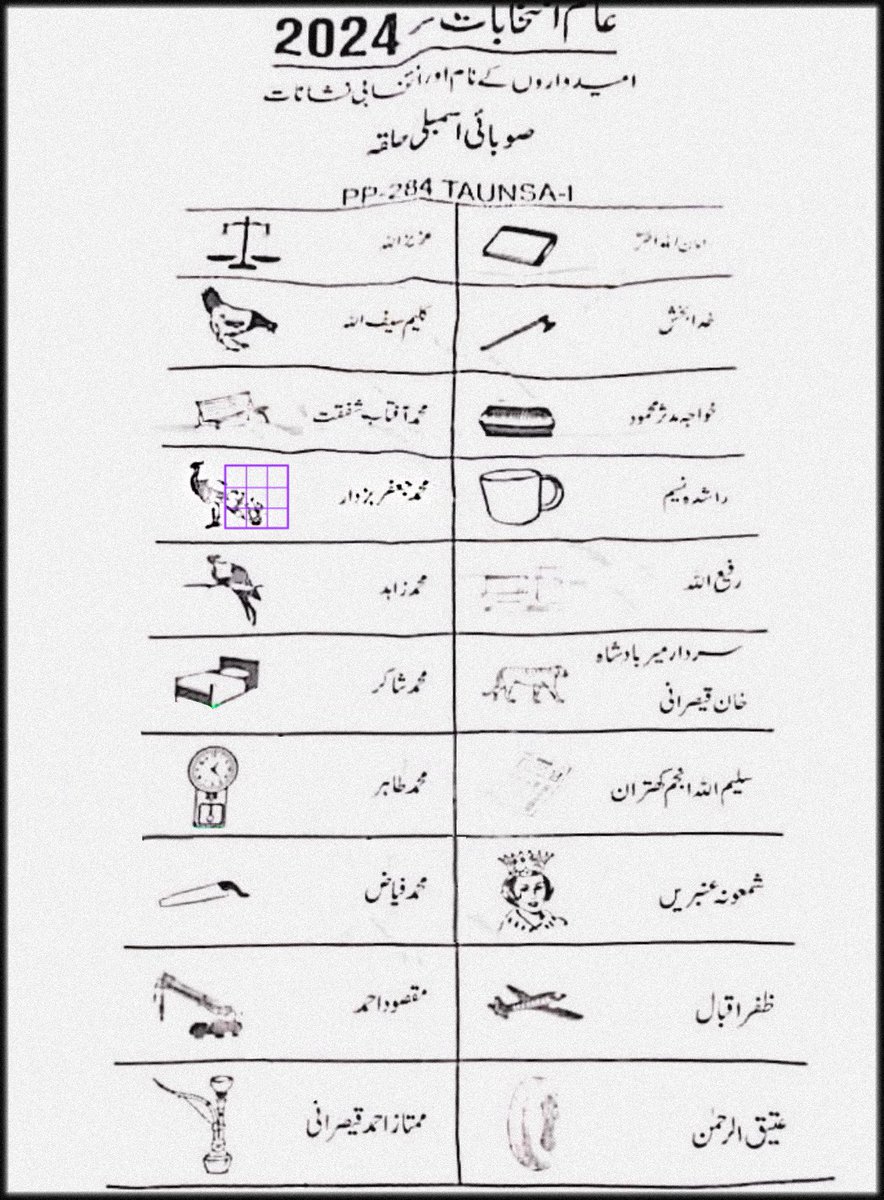 عام انتخابات 2024
امیدواروں کے نام اور انتخابی نشانات
صوبائی اسمبلی حلقہ
PP-284 TAUNSA-I
امان اللہ
عزیز اللہ
خدا بخش
کلیم سیف اللہ
خواجہ مدثر محمود
محمد آفتاب شفقت
راشدہ نسیم
محمد جعفر بزدار
رفیع اللہ
محمد زاہد
سردار میر بادشاہ
خان قیصرانی
محمد شاکر
سلیم اللہ انجم کھتران
محمد طاہر
شمعونہ عنبریں
محمد فیاض
ظفر اقبال
مقصود احمد
عتیق الرحمٰن
ممتاز احمد قیصرانی